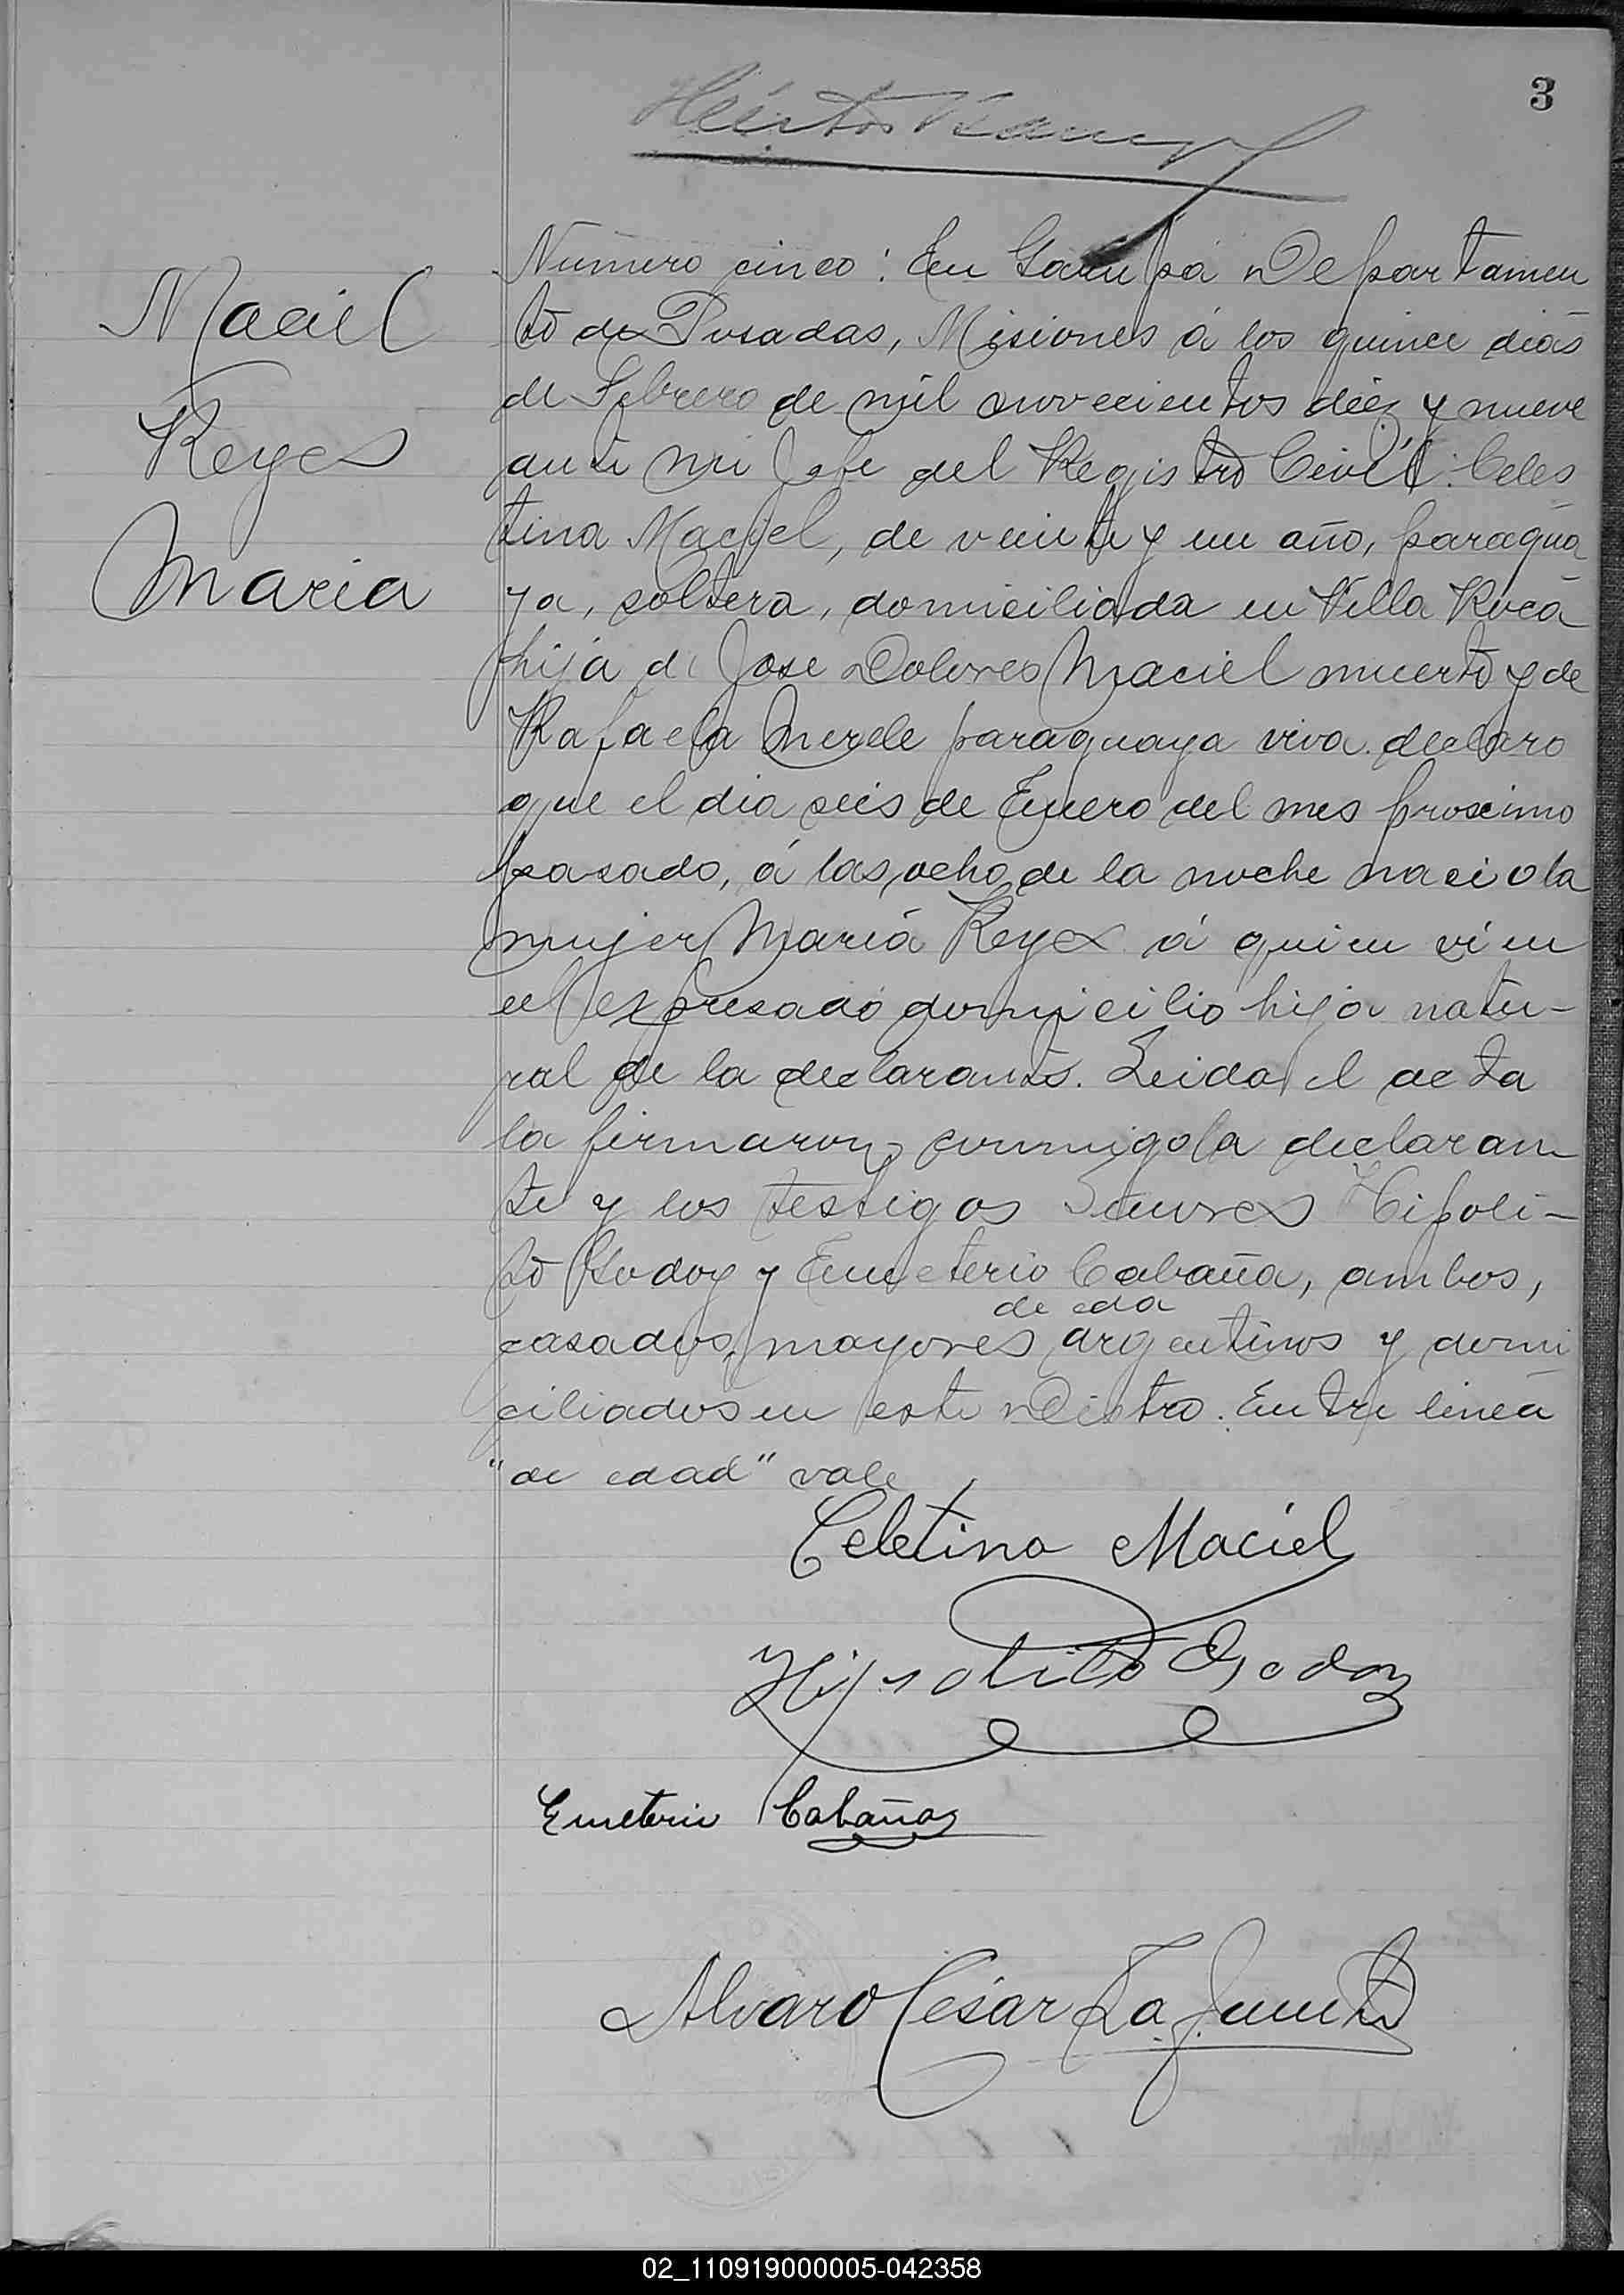 3
Maciel
Reyes
Maria
Número cinco: En Garupá Departamen
to de Posadas, Misiones á los quince dias
de Febrero de mil novecientos diez y nueve
ante mi Jefe del Registro Civil: Celes
tina Maciel, de veinte y un año, paragua
ya, soltera, domiciliada en Villa Roca
hija de Jose Dolores Maciel muerto y de
Rafaela paraguaya viva. declaro
que el dia seis de Enero del mes proximo
pasado, á las ocho de la noche nacio la
mujer Maria Reyes á quien vi en
el expresado domicilio hija natu-
ral de la declarante. Leida el acta
la firmaron conmigo la declaran
te y los testigos Señores Hipoli-
to Godoy y Emeterio Cabaña, ambos,
de eda
casados, mayores argentinos y domi
ciliados en este Distro. Entre linea
"de edad" vale
Celetina Maciel
Hipolito Godoy
Emeterio Cabañas
Alvaro César La Fuente
02_110919000005-042358